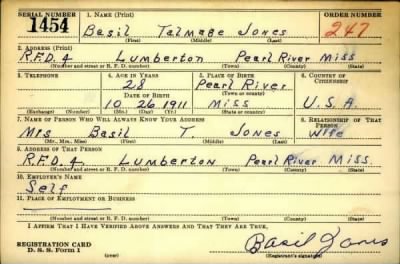 SERIAL NUMBER 1. NAME (Print) ORDER NUMBER
1454 Basil Talmage Jones 247
(First) (Middle) (Last)
2. ADDRESS (Print)
R.F.D. 4 Lumberton Pearl River Miss
(Number and street or R. F. D. number) (Town) (County) (State)
3. TELEPHONE 4. AGE IN YEARS 5. PLACE OF BIRTH 6. COUNTRY OF CITIZENSHIP
28 Pearl River
(Town or county)
DATE OF BIRTH
10 26 1911 Miss U.S.A.
(Exchange) (Number) (Mo.) (Day) (Yr.) (State or country)
7. NAME OF PERSON WHO WILL ALWAYS KNOW YOUR ADDRESS 8. RELATIONSHIP OF THAT PERSON
Mrs Basil T. Jones Wife
(Mr., Mrs., Miss) (First) (Middle) (Last)
9. ADDRESS OF THAT PERSON
R.F.D. 4 Lumberton Pearl River Miss.
(Number and street or R. F. D. number) (Town) (County) (State)
10. EMPLOYER'S NAME
Self
11. PLACE OF EMPLOYMENT OR BUSINESS
(Number and street or R. F. D. number) (Town) (County) (State)
I AFFIRM THAT I HAVE VERIFIED ABOVE ANSWERS AND THAT THEY ARE TRUE.
REGISTRATION CARD
D. S. S. Form 1 (over) Basil Jones
(Registrant's signature)